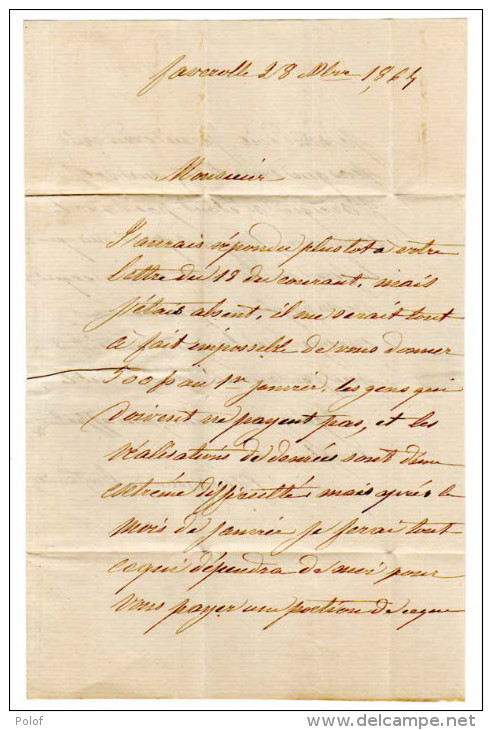 Faverolle 28 Xbre 1864
Monsieur
J'aurais répondu plustot a votre
lettre du 19 du courant, mais
j'étais absent, il me serait tout
à fait impossible de vous donner
500 f au 1er janvier, les gens qui
doivent ne payent pas, et les
réalisations de denrées sont d'une
extréme difficultés, mais après le
mois de janvier je ferai tout
ce qui dépendra de moi pour
vous payer une portion de ce que
Polof
delcampe.net